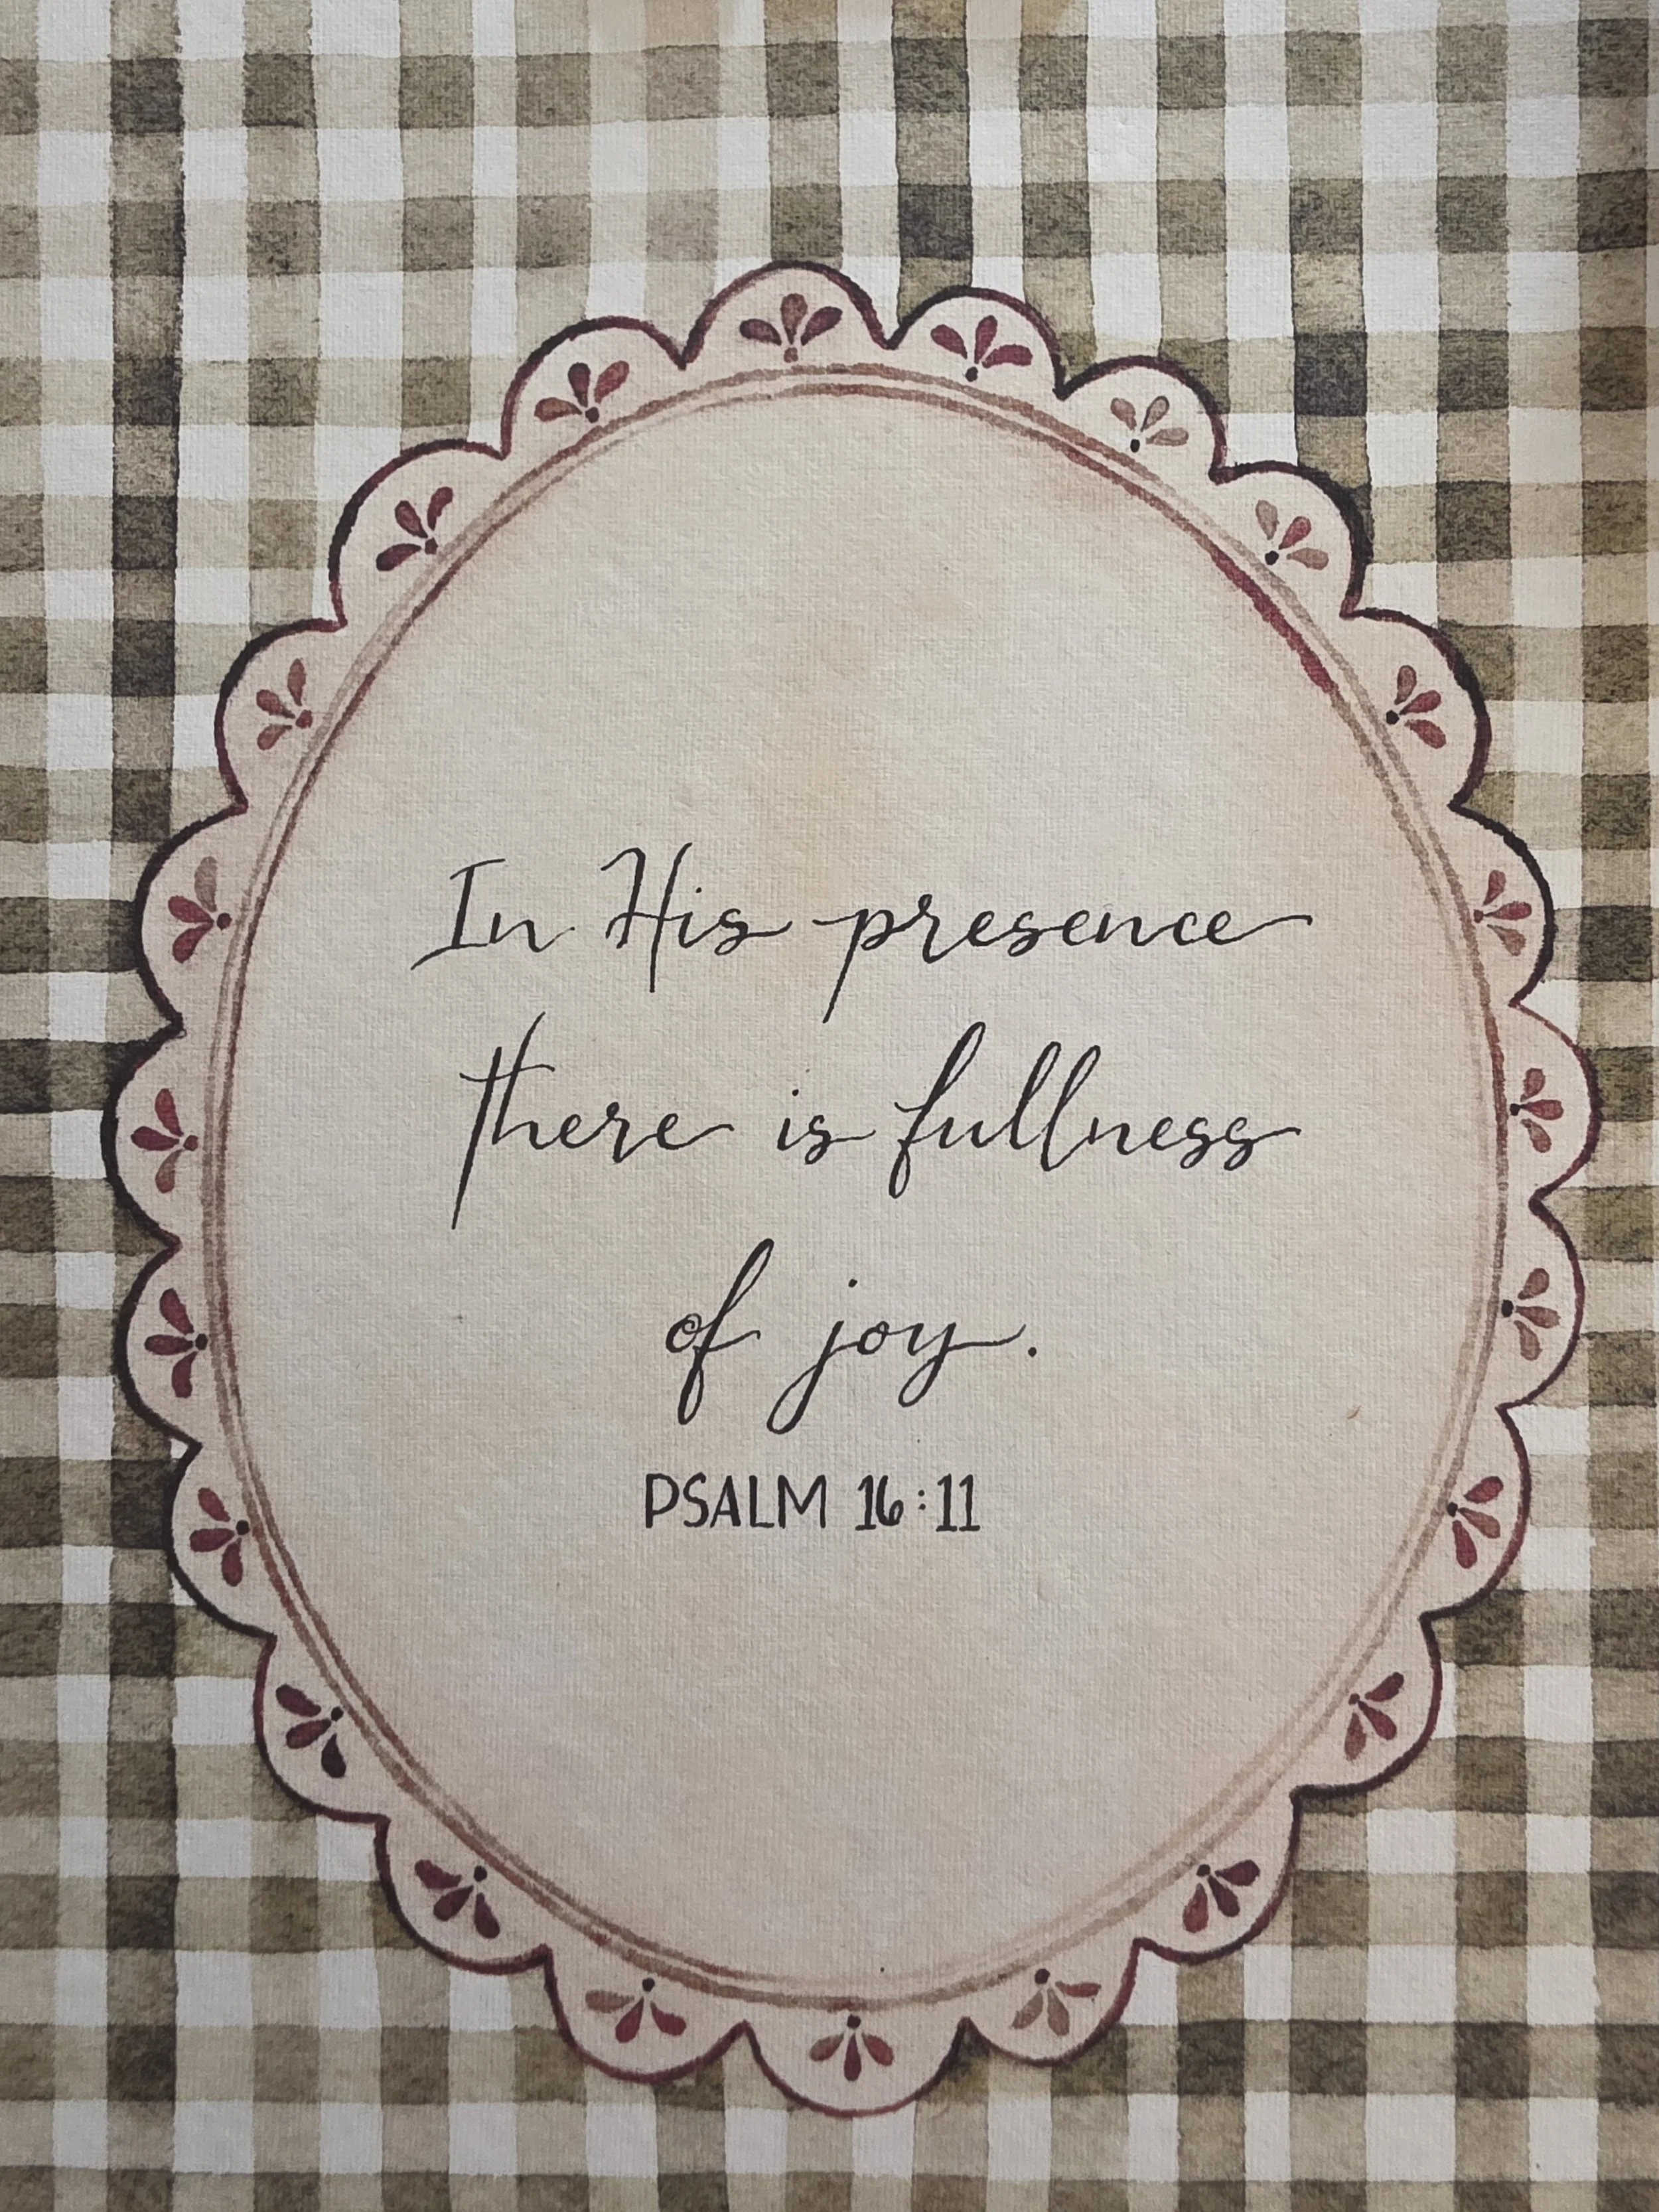 In His presence
there is fullness
of joy.
PSALM 16:11